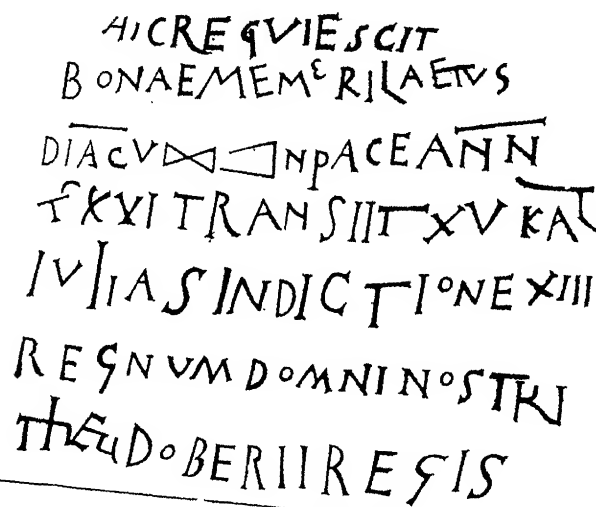 HIC REQVIESCIT
BONAE MEMERI LAETVS
DIACV INPACE ANN
XXVI TRANSIIT XV KAL
IVLIAS INDICTIONE XIII
REGNVM DOMNI NOSTRI
THEUDOBERII REGIS